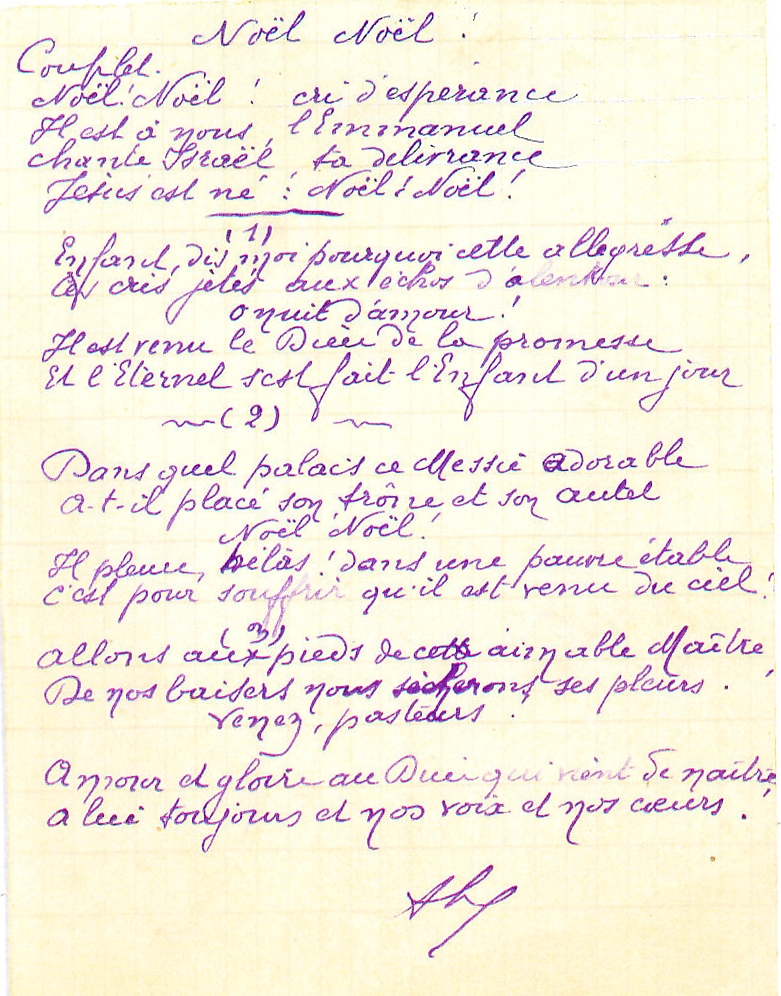 Noël Noël !
Couplet.
Noël ! Noël ! cri d'espérance
Il est à nous, l'Emmanuel
chante Israël ta délivrance
Jésus est né : Noël ! Noël !
(1)
Enfant, dis moi pourquoi cette allegresse,
Ces cris jetés aux échos d'alentour :
o nuit d'amour !
Il est venu le Dieu de la promesse
Et l'Eternel s'est fait l'Enfant d'un jour
(2)
Dans quel palais ce Messie adorable
a-t-il placé son trône et son autel
Noël Noël !
Il pleure, hélàs ! dans une pauvre étable
c'est pour souffrir qu'il est venu du ciel !
(3)
allons aux pieds de cette aimable Maître
De nos baisers nous sècherons ses pleurs !
venez, pasteurs !
Amour et gloire au Dieu qui vient de naître
a lui toujours et nos voix et nos cœurs !